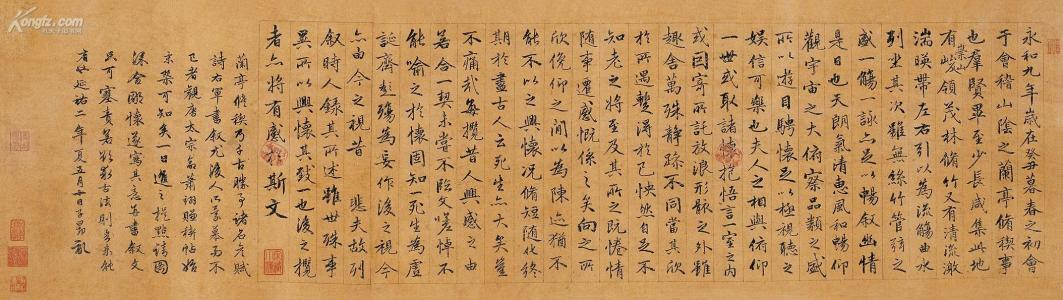 永和九年歲在癸丑暮春之初會
于會稽山陰之蘭亭脩稧事
也群賢畢至少長咸集此地
有崇山峻領茂林脩竹又有清流激
湍暎帶左右引以為流觴曲水
列坐其次雖無絲竹管弦之
盛一觴一詠亦足以暢叙幽情
是日也天朗氣清惠風和暢仰
觀宇宙之大俯察品類之盛
所以遊目騁懷足以極視聽之
娛信可樂也夫人之相與俯仰
一世或取諸懷抱悟言一室之內
或因寄所託放浪形骸之外雖
趣舍萬殊靜躁不同當其欣
於所遇蹔得於己怏然自足不
知老之將至及其所之既惓情
隨事遷感慨係之矣向之所
欣俛仰之間以為陳迹猶不
能不以之興懷況脩短隨化終
期於盡古人云死生亦大矣豈
不痛哉每攬昔人興感之由
若合一契未嘗不臨文嗟悼不
能喻之於懷固知死生為虛
誕齊彭殤為妄作後之視今
亦由今之視昔 悲夫故列
叙時人錄其所述雖世殊事
異所以興懷其致一也後之攬
者亦將有感於斯文
蘭亭脩稧乃千古勝事諸名彥賦
詩右軍書叙尤後人所慕而不
已者觀唐太宗命蕭翊賺
京
可知矣一日進之
深合
懷遂寫其意并書叙文
延祐二年夏五月十日子昂
Kongfz.com